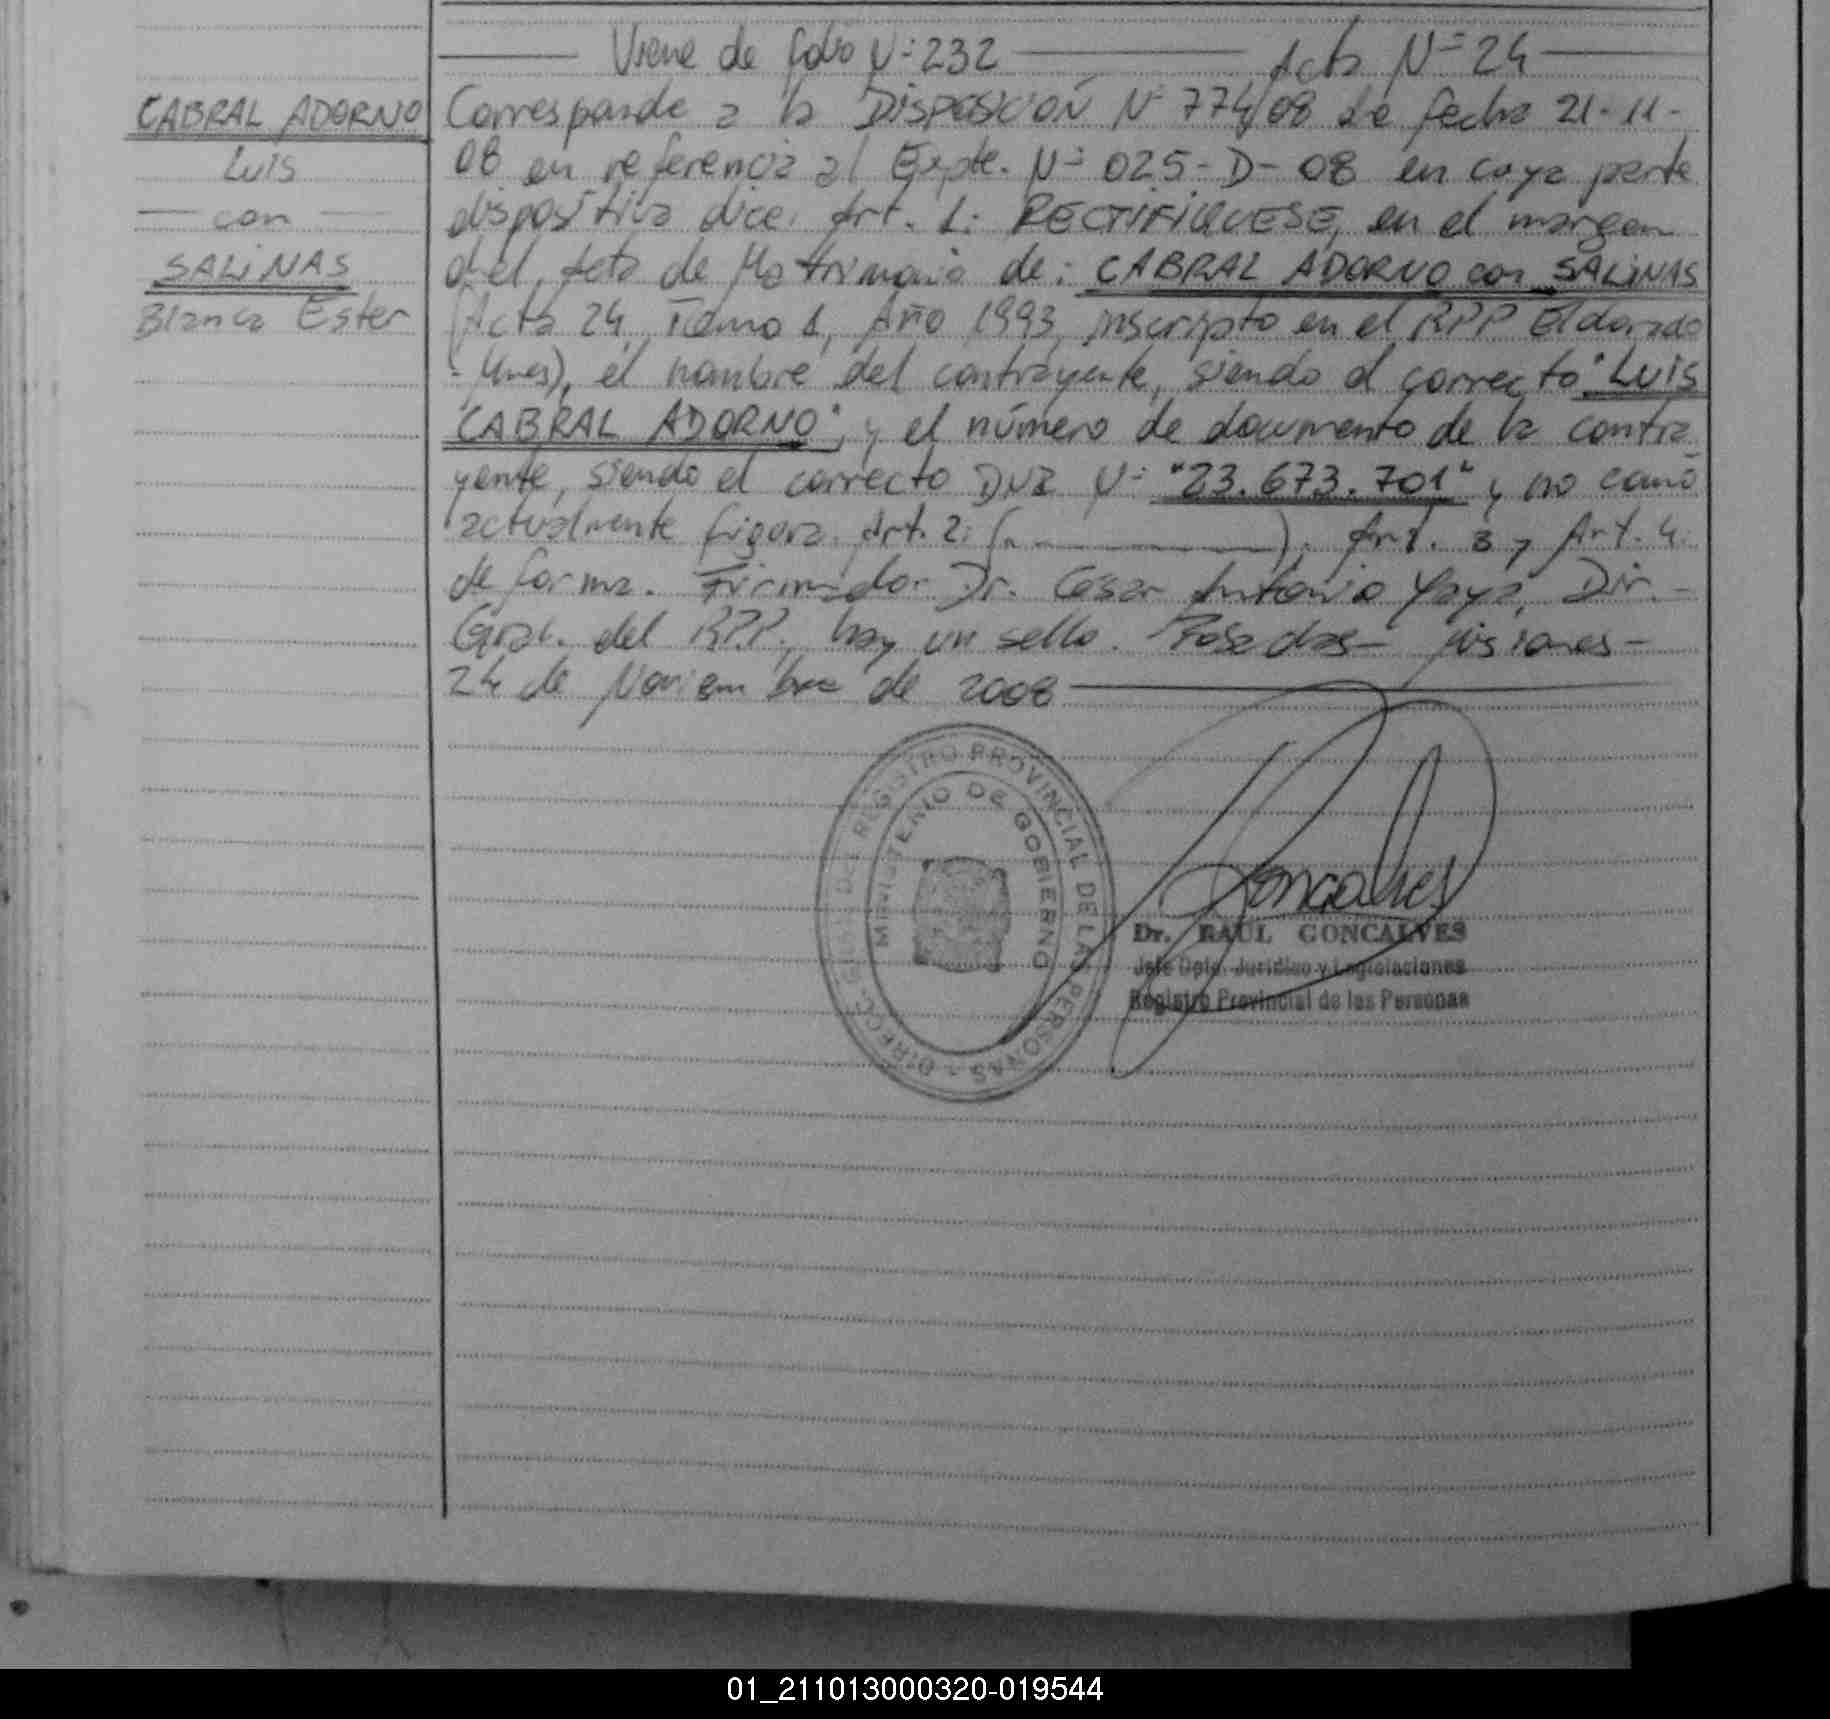 Viene de folio N=232 Acta N=24
CABRAL ADORNO
Luis
con
SALINAS
Blanca Ester
Corresponde a la DISPOSICIÓN N= 774/08 de fecha 21-11-
08 en referencia al Expte. N= 025-D-08 en cuya parte
dispositiva dice: Art. 1: RECTIFIQUESE, en el margen
del Acta de Matrimonio de: CABRAL ADORNO con SALINAS
(Acta 24, Tomo 1, Año 1993, inscripto en el RPP Eldorado
- Mnes), el nombre del contrayente, siendo el correcto "LUIS
CABRAL ADORNO", y el número de documento de la contra
yente, siendo el correcto DNI N= "23.673.701" y no como
actualmente figura. Art. 2: ( ). Art. 3 y Art. 4:
de forma. Firmado: Dr. Cesar Antonio Yaya, Dir.-
Gral. del RPP, hay un sello. Posadas- Misiones-
24 de Noviembre de 2008
DIRECC. GRAL. DEL REGISTRO PROVINCIAL DE LAS PERSONAS -
MINISTERIO DE GOBIERNO
Goncalves
Dr. RAUL GONCALVES
Jefe Dpto. Jurídico y Legislaciones
Registro Provincial de las Personas
01_211013000320-019544